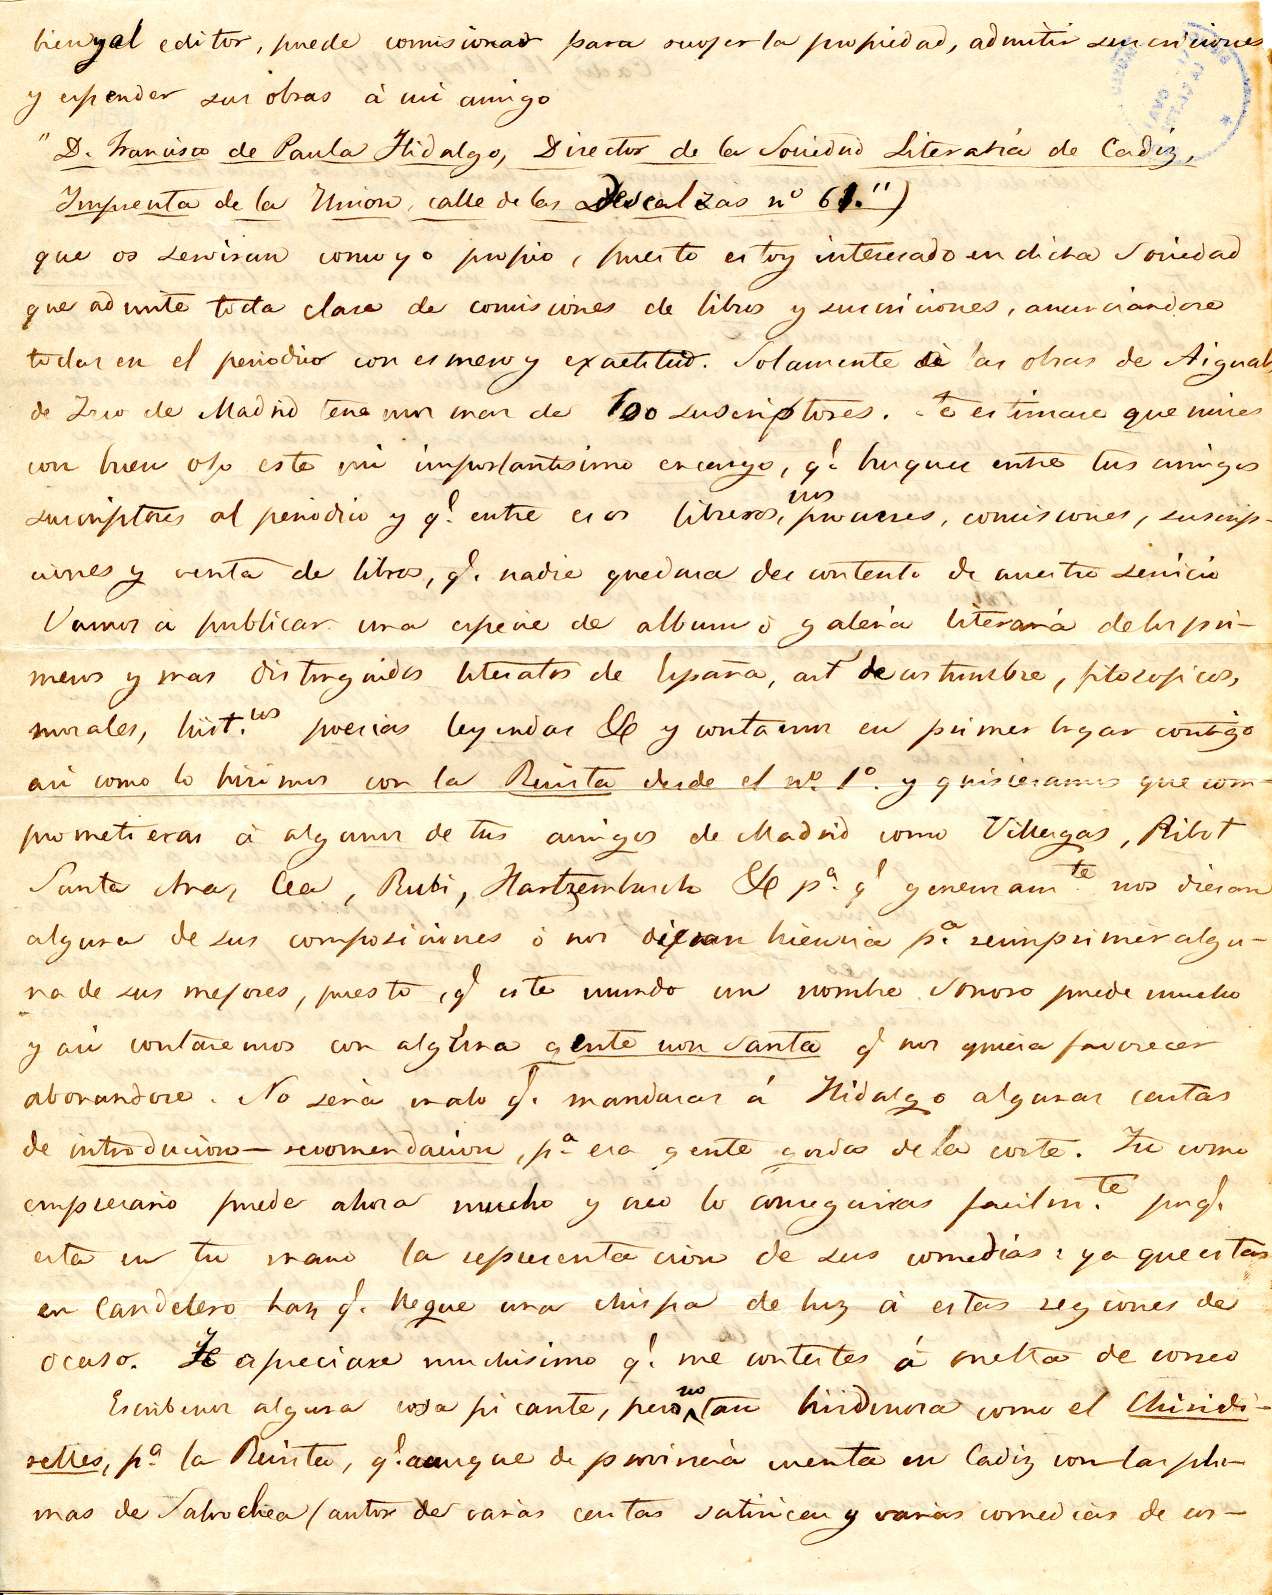 bien y al editor, puede comisionar para recojer la propiedad, admitir suscriciones
y espender sus obras á mi amigo
"D. Francisco de Paula Hidalgo, Director de la Sociedad Literaria de Cadiz,
Imprenta de la Union, calle de las Descalzas nº 61.")
que os serviran como yo propio, puesto estoy interesado en dicha Sociedad
que admite toda clase de comisiones de libros y suscriciones, anunciandose
todas en el periodico con esmero y exactitud. Solamente de las obras de Aiguals
de Izco de Madrid tenemos mas de 100 suscriptores. Te estimare que mires
con buen ojo este mi importantisimo encargo, q.e busques entre tus amigos
suscriptores al periodico y q.e entre esos libreros, nos procures, comisiones, suscrip-
ciones y venta de libros, q.e nadie quedara descontento de nuestro servicio
Vamos a publicar una especie de album ó galeria literaria de los pri-
meros y mas distinguidos literatos de España, art.s de costumbre, filosoficos,
morales, hist.cos poesias leyendas &c y contamos en primer lugar contigo
asi como lo hicimos con la Revista desde el nº 1º. y quisieramos que com-
prometieras á algunos de tus amigos de Madrid como Villergas, Ribot
Santa Ana, Cea, Rubi, Hartzembusch &c p.a q.e generosam.te nos dieran
alguna de sus composiciones ó nos dieran licencia p.a reimprimir algu-
na de sus mejores, puesto, q.e este mundo un nombre sonoro puede mucho
y asi contaremos con alguna gente non santa q.e nos quiera favorecer
abonandose. No seria malo q.e mandaras á Hidalgo algunas cartas
de introducion-recomendacion, p.a esa gente gorda de la corte. Tu como
empresario puede ahora mucho y creo lo conseguiras facilm.te porq.e
esta en tu mano la representacion de sus comedias: ya que estas
en candelero haz q.e llegue una chispa de luz á estas regiones de
ocaso. Te apreciare muchisimo q.e me contestes á vuelta de correo
Escribenos alguna cosa picante, pero no tan hirdiniosa como el Chirido-
relles, p.a la Revista, q.e aunque de provincia cuenta en Cadiz con las plu-
mas de Salvochea (autor de varias cartas satiricas y varias comedias de cos-